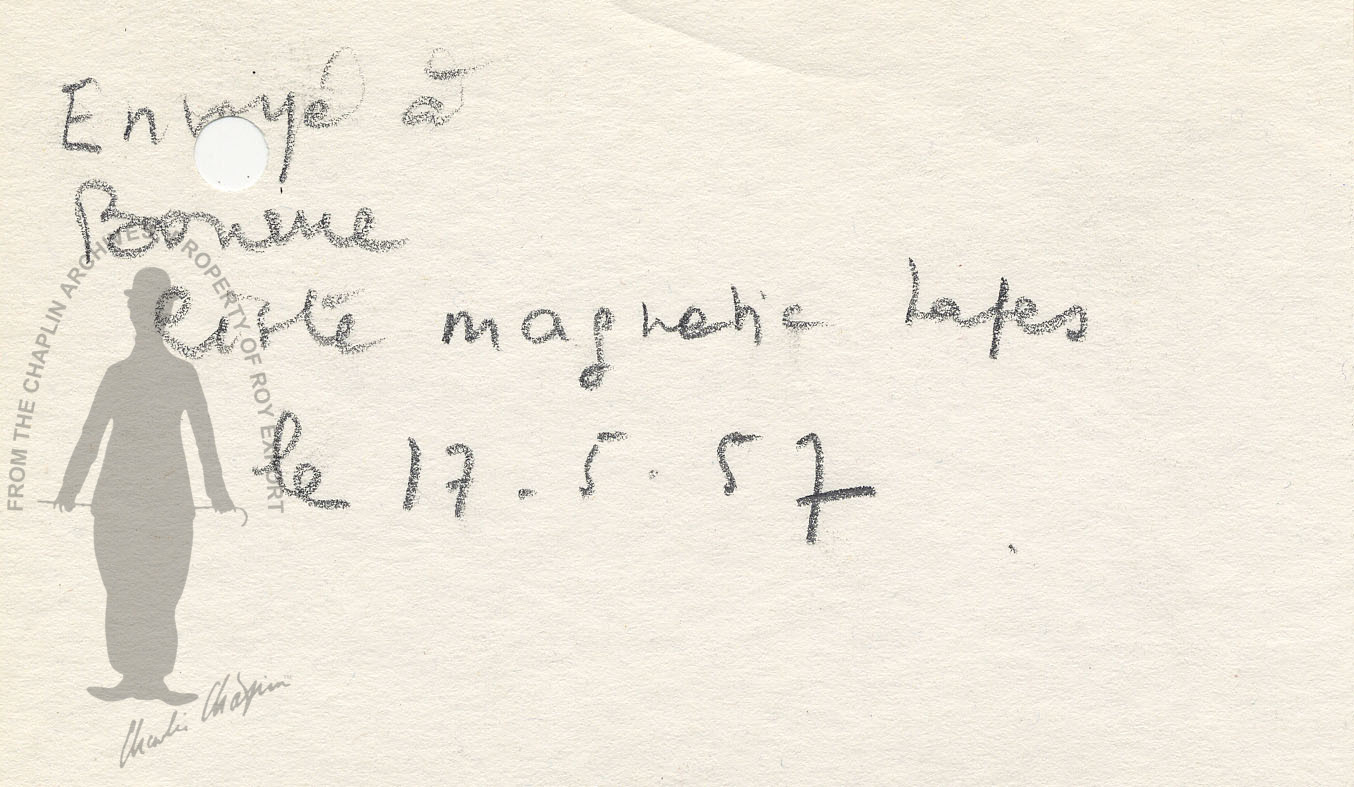 Envoyé à
Bonine
liste magnetic tapes
le 17.5.57
FROM THE CHAPLIN ARCHIVES. PROPERTY OF ROY EXPORT
Charlie Chaplin